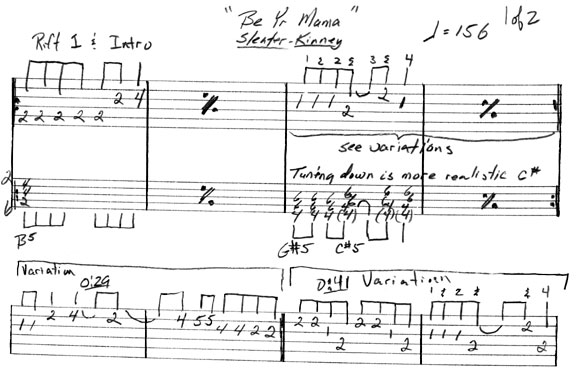 "Be Yr Mama"
Sleater-Kinney
♩=156
1 of 2
Riff I & Intro
1 2 2 & 3 & 4
2 2 2 2 2 2 4
1 1 1 2 2 1
see variations
Tuning down is more realistic C#
B5
G#5 C#5
Variation
0:29
0:41 Variation
1 1 2 4 2 4 5 5 4 4 2 2
2 2 1 2 2 2 1 2
1 1 1 2 2 2